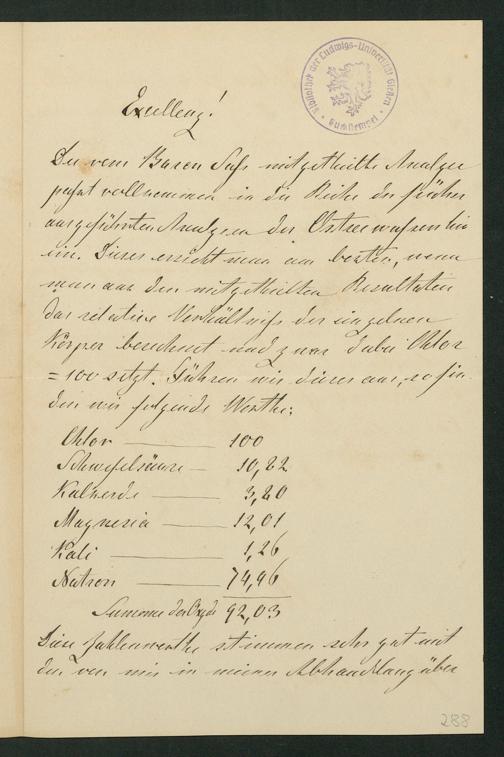 Bibliothek der Ludwigs-Universität Gießen
Buchstempel
Excellenz!
Die vom Baron Sass mitgetheilte Analyse
passt vollkommen in die Reihe der früher
ausgeführten Analysen des Ostseewassers hin
ein. Dieses ersieht man am besten, wenn
man aus den mitgetheilten Resultaten
das relative Verhältniss der einzelnen
Körper berechnet und zwar dabei Chlor
= 100 setzt. Führen wir dieses aus, so fin
den wir folgende Werthe:
Chlor — 100
Schwefelsäure — 10,82
Kalkerde — 3,20
Magnesia — 12,01
Kali — 1,26
Natron — 74,96
Summe der Oxyde 92,03
Diese Zahlenwerthe stimmen sehr gut mit
den von mir in meiner Abhandlung über
288